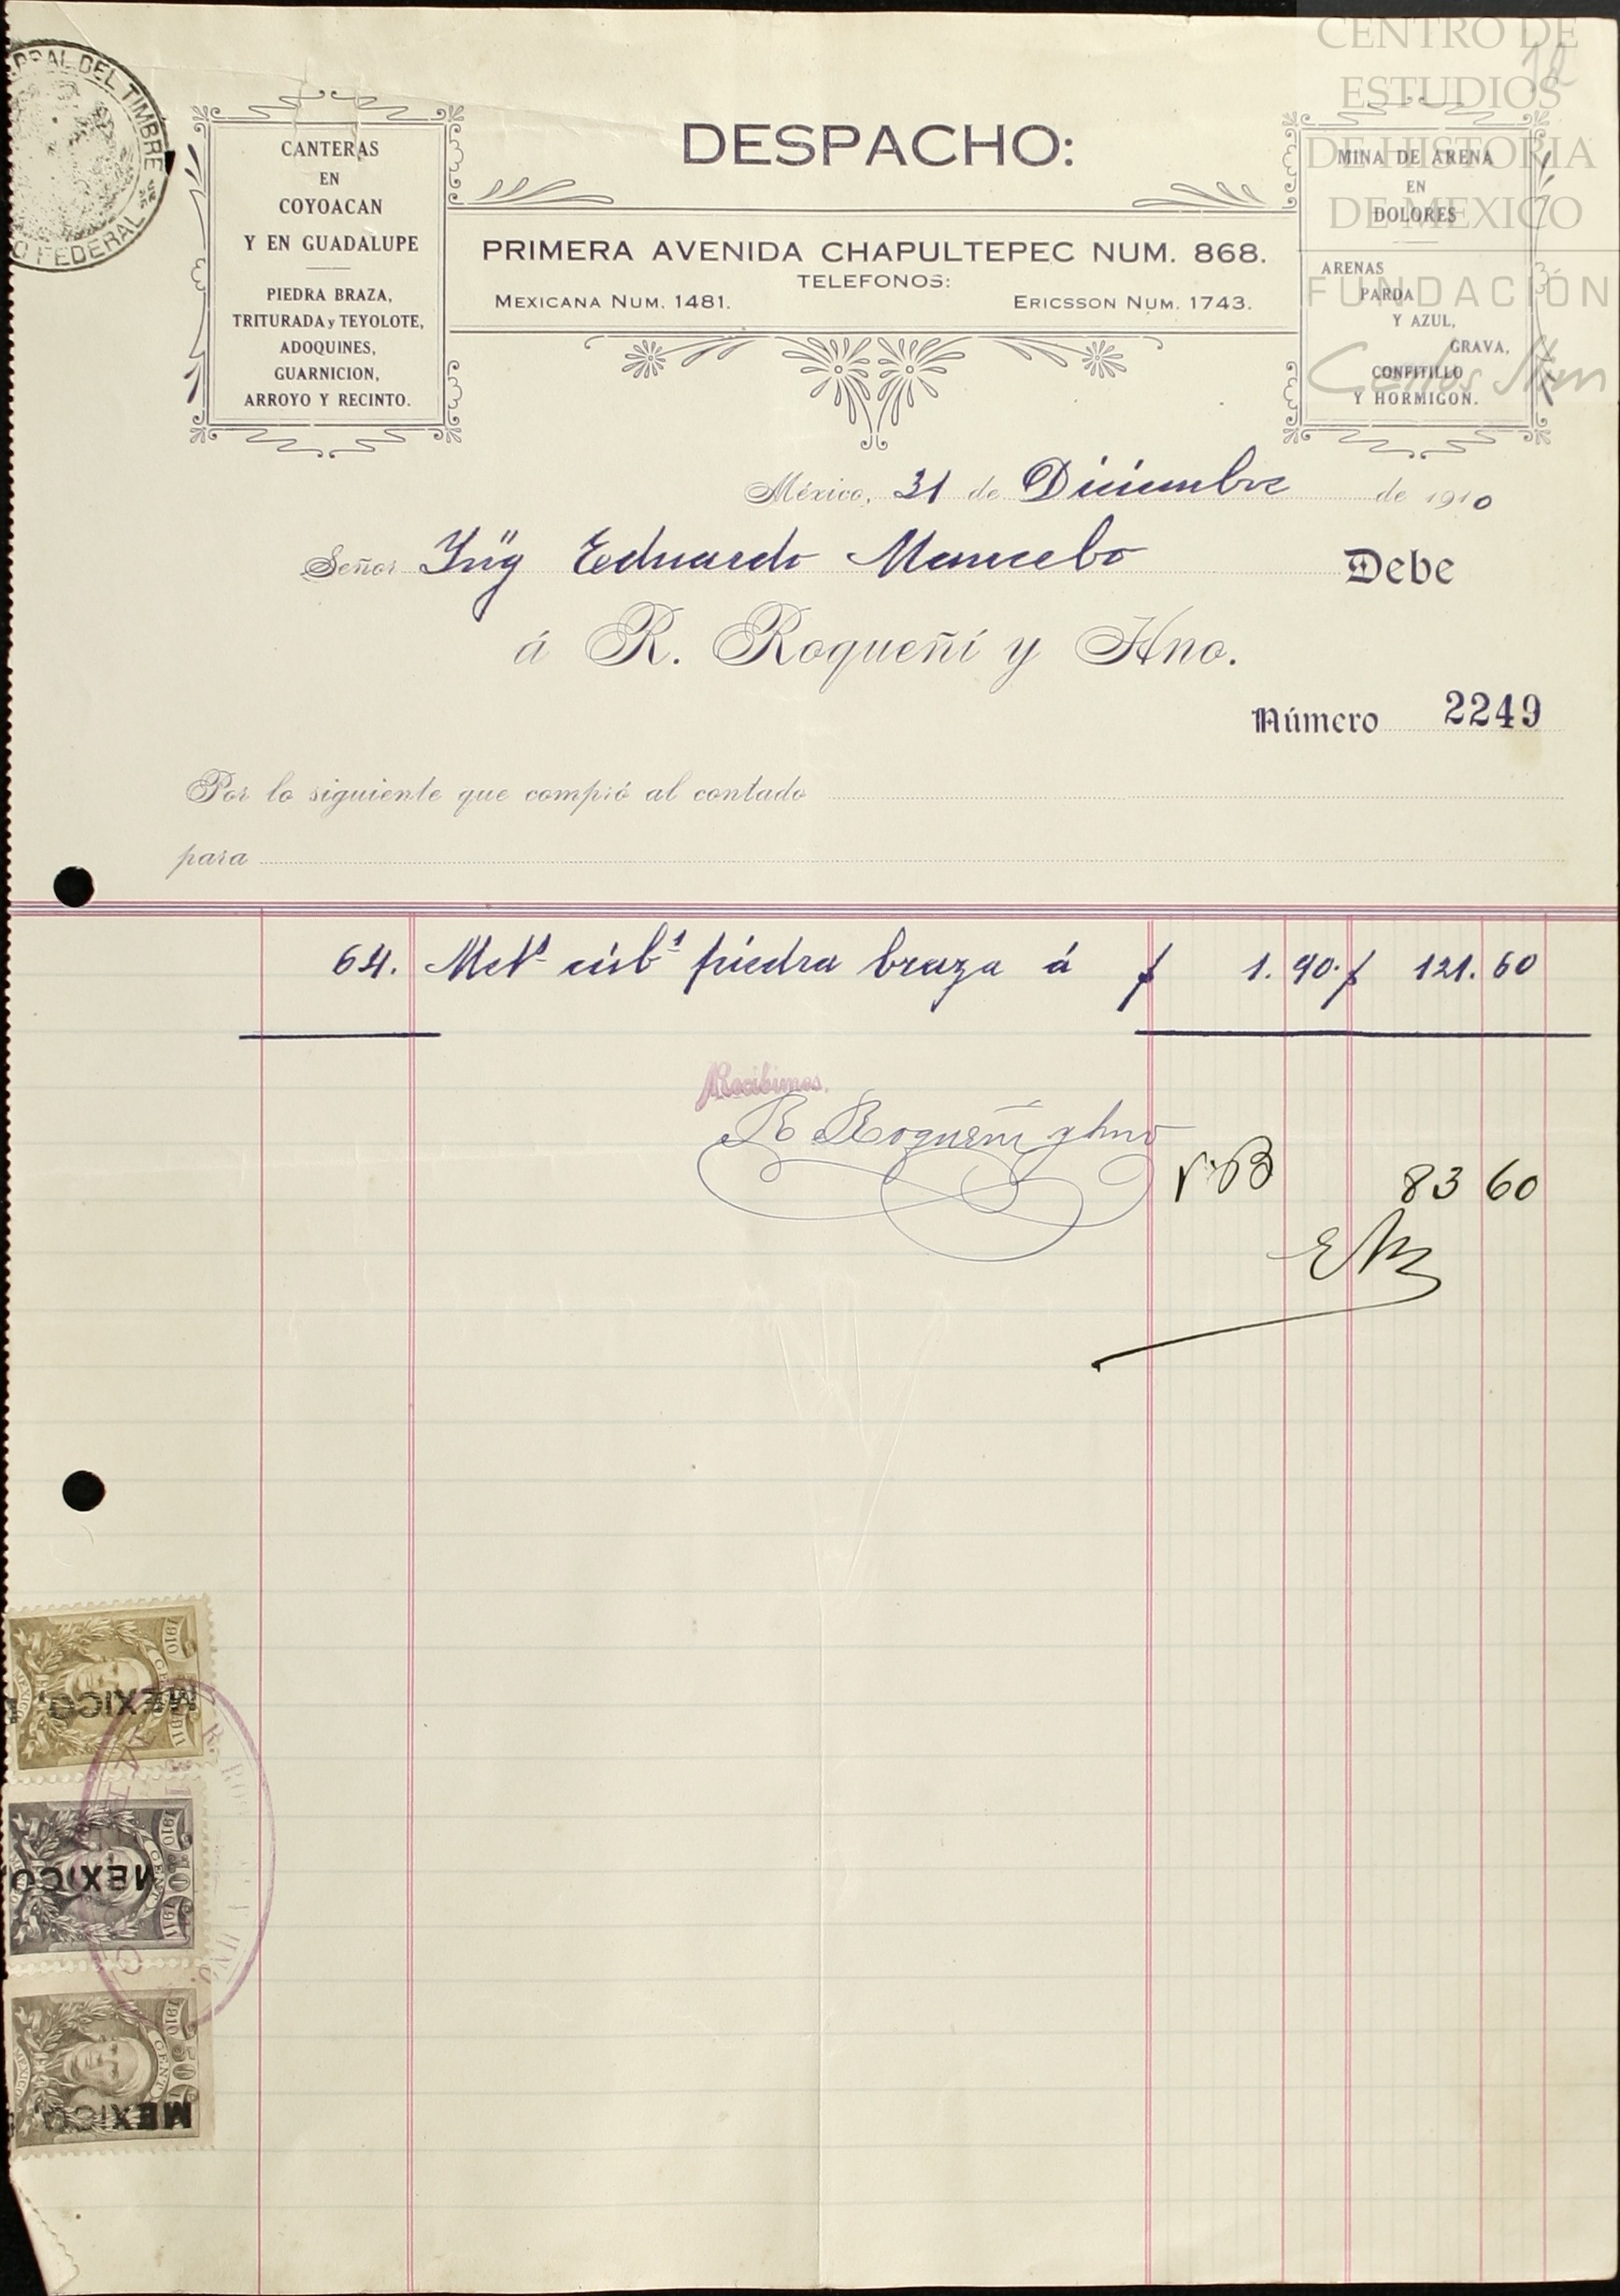 CENTRO DE
ESTUDIOS
DE HISTORIA
DE MEXICO
FUNDACIÓN
Carlos Slim
12
RAL DEL TIMBRE
O FEDERAL
CANTERAS
EN
COYOACAN
Y EN GUADALUPE
PIEDRA BRAZA,
TRITURADA y TEYOLOTE,
ADOQUINES,
GUARNICION,
ARROYO Y RECINTO.
DESPACHO:
PRIMERA AVENIDA CHAPULTEPEC NUM. 868.
TELEFONOS:
MEXICANA NUM. 1481. ERICSSON NUM. 1743.
MINA DE ARENA
EN
DOLORES
ARENAS
PARDA
Y AZUL,
GRAVA,
CONFITILLO
Y HORMIGON.
México, 31 de Diciembre de 1910
Señor Ing Eduardo Mancebo Debe
á R. Roqueñí y Hno.
Número 2249
Por lo siguiente que compró al contado
para
64. Mets cúbs piedra braza á $ 1.90. $ 121.60
Recibimos.
R Roqueñi y hno
V.B 83 60
EM
1910 CENT 1911
MEXICO
1910 10 CENT 1911
MEXICO
1910 50 CENT
MEXICO